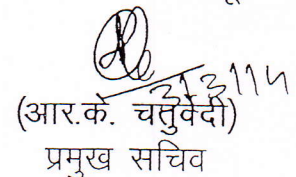 313114
(आर.के. चतुर्वेदी)
प्रमुख सचिव